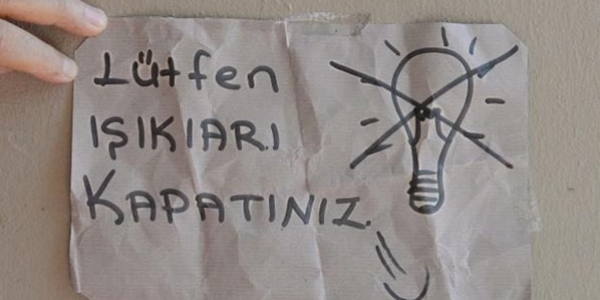 Lütfen
IŞIKlARI
KAPATINIZ.